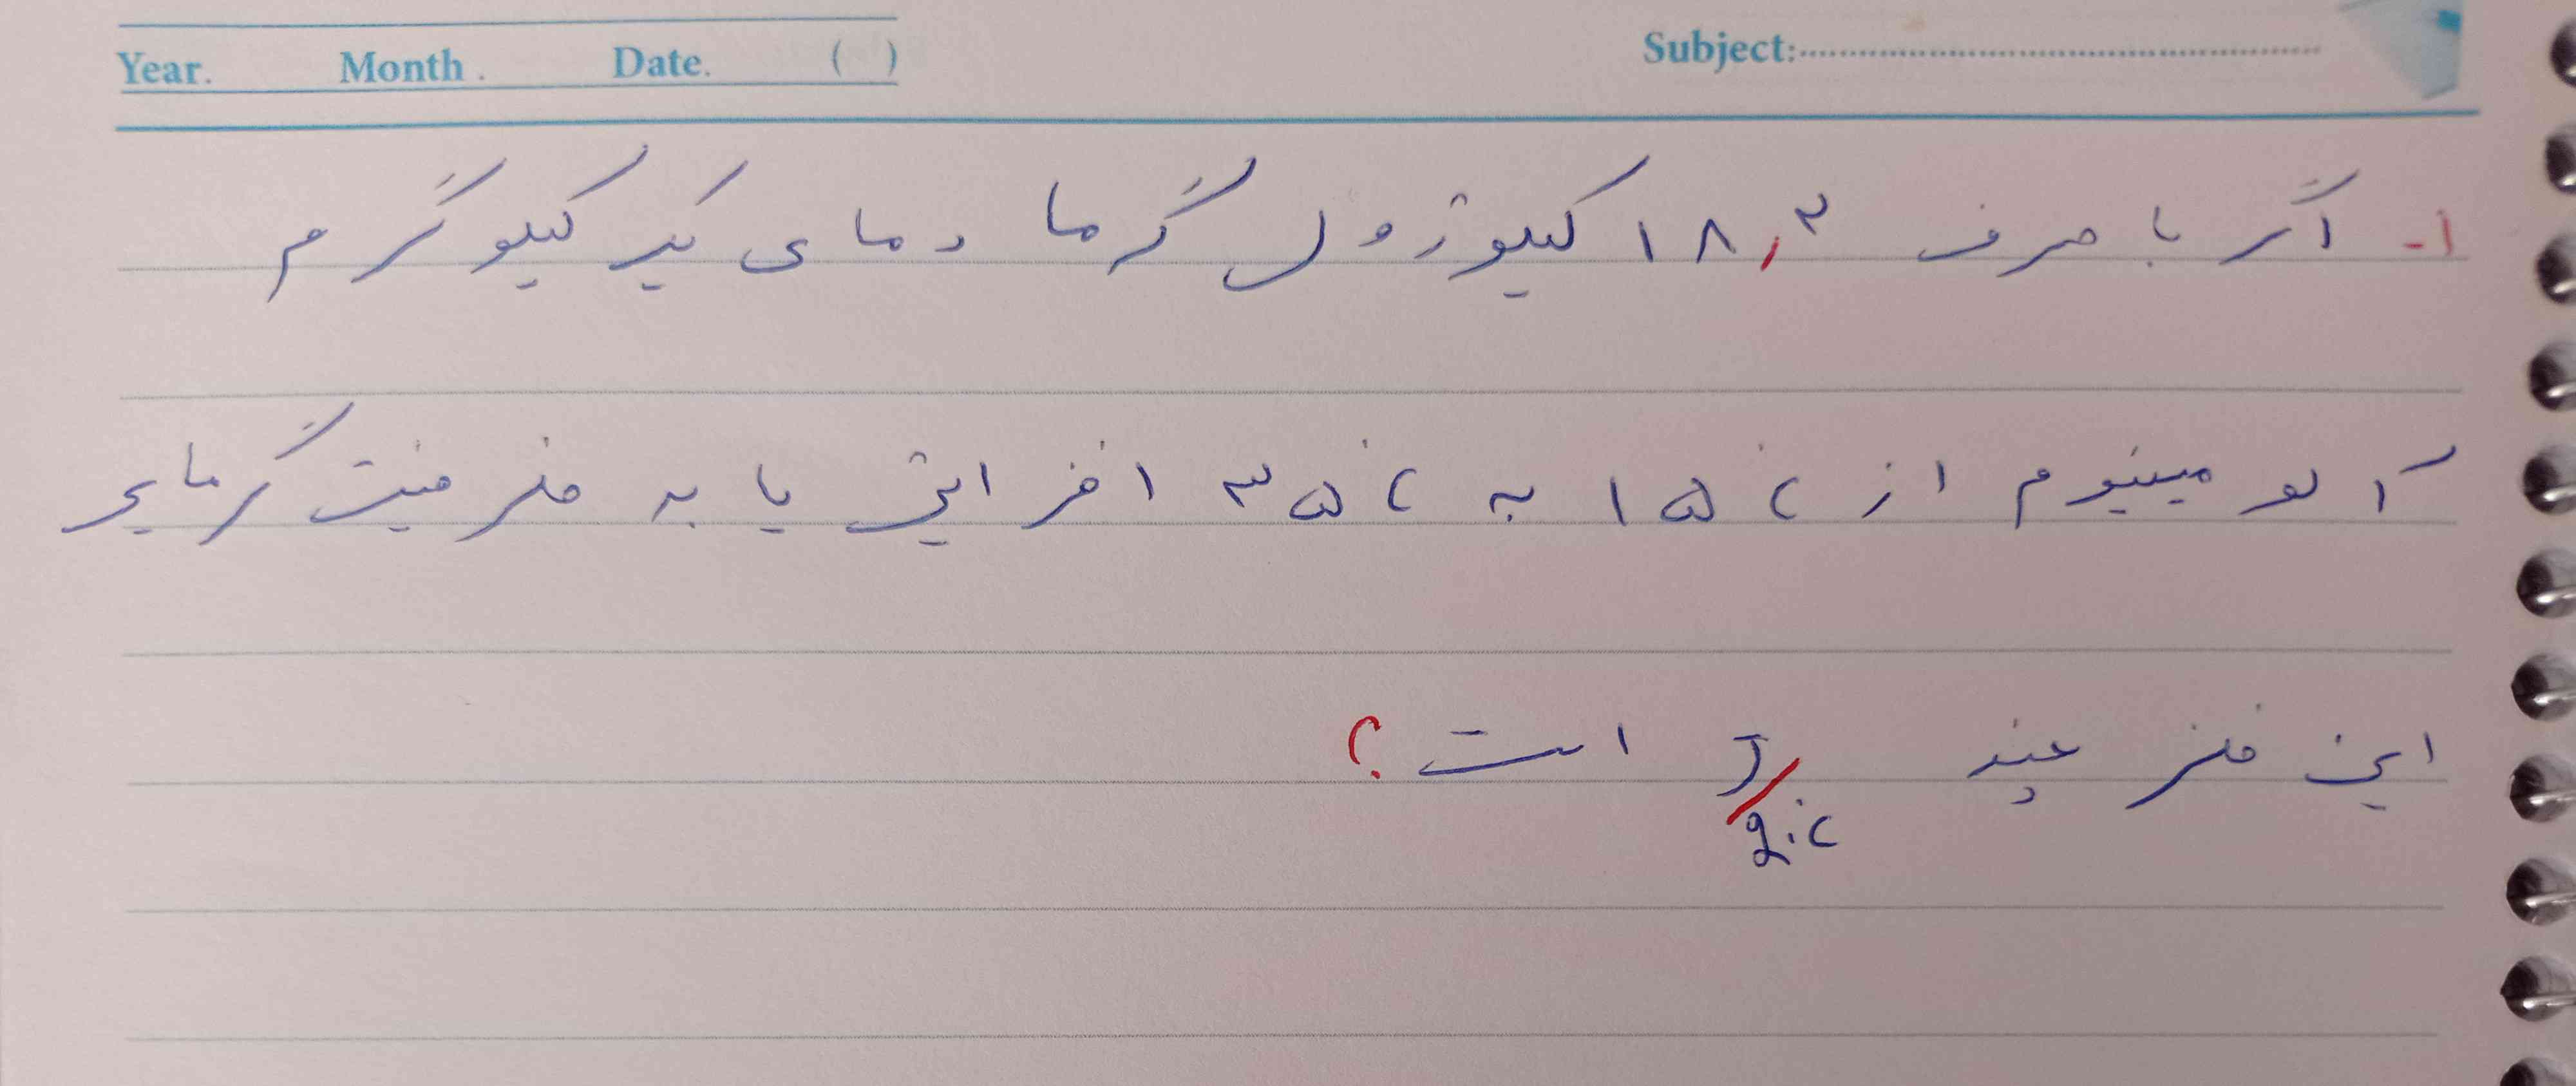 Year. Month. Date. ( ) Subject:
۱- اگر با صرف ۱۸٫۳ کیلوژول گرما دمای یک کیلوگرم
آلومینیوم از ۱۵°C به ۳۵°C افزایش یابد ظرفیت گرمایی
این فلز چند J/g.°C است؟